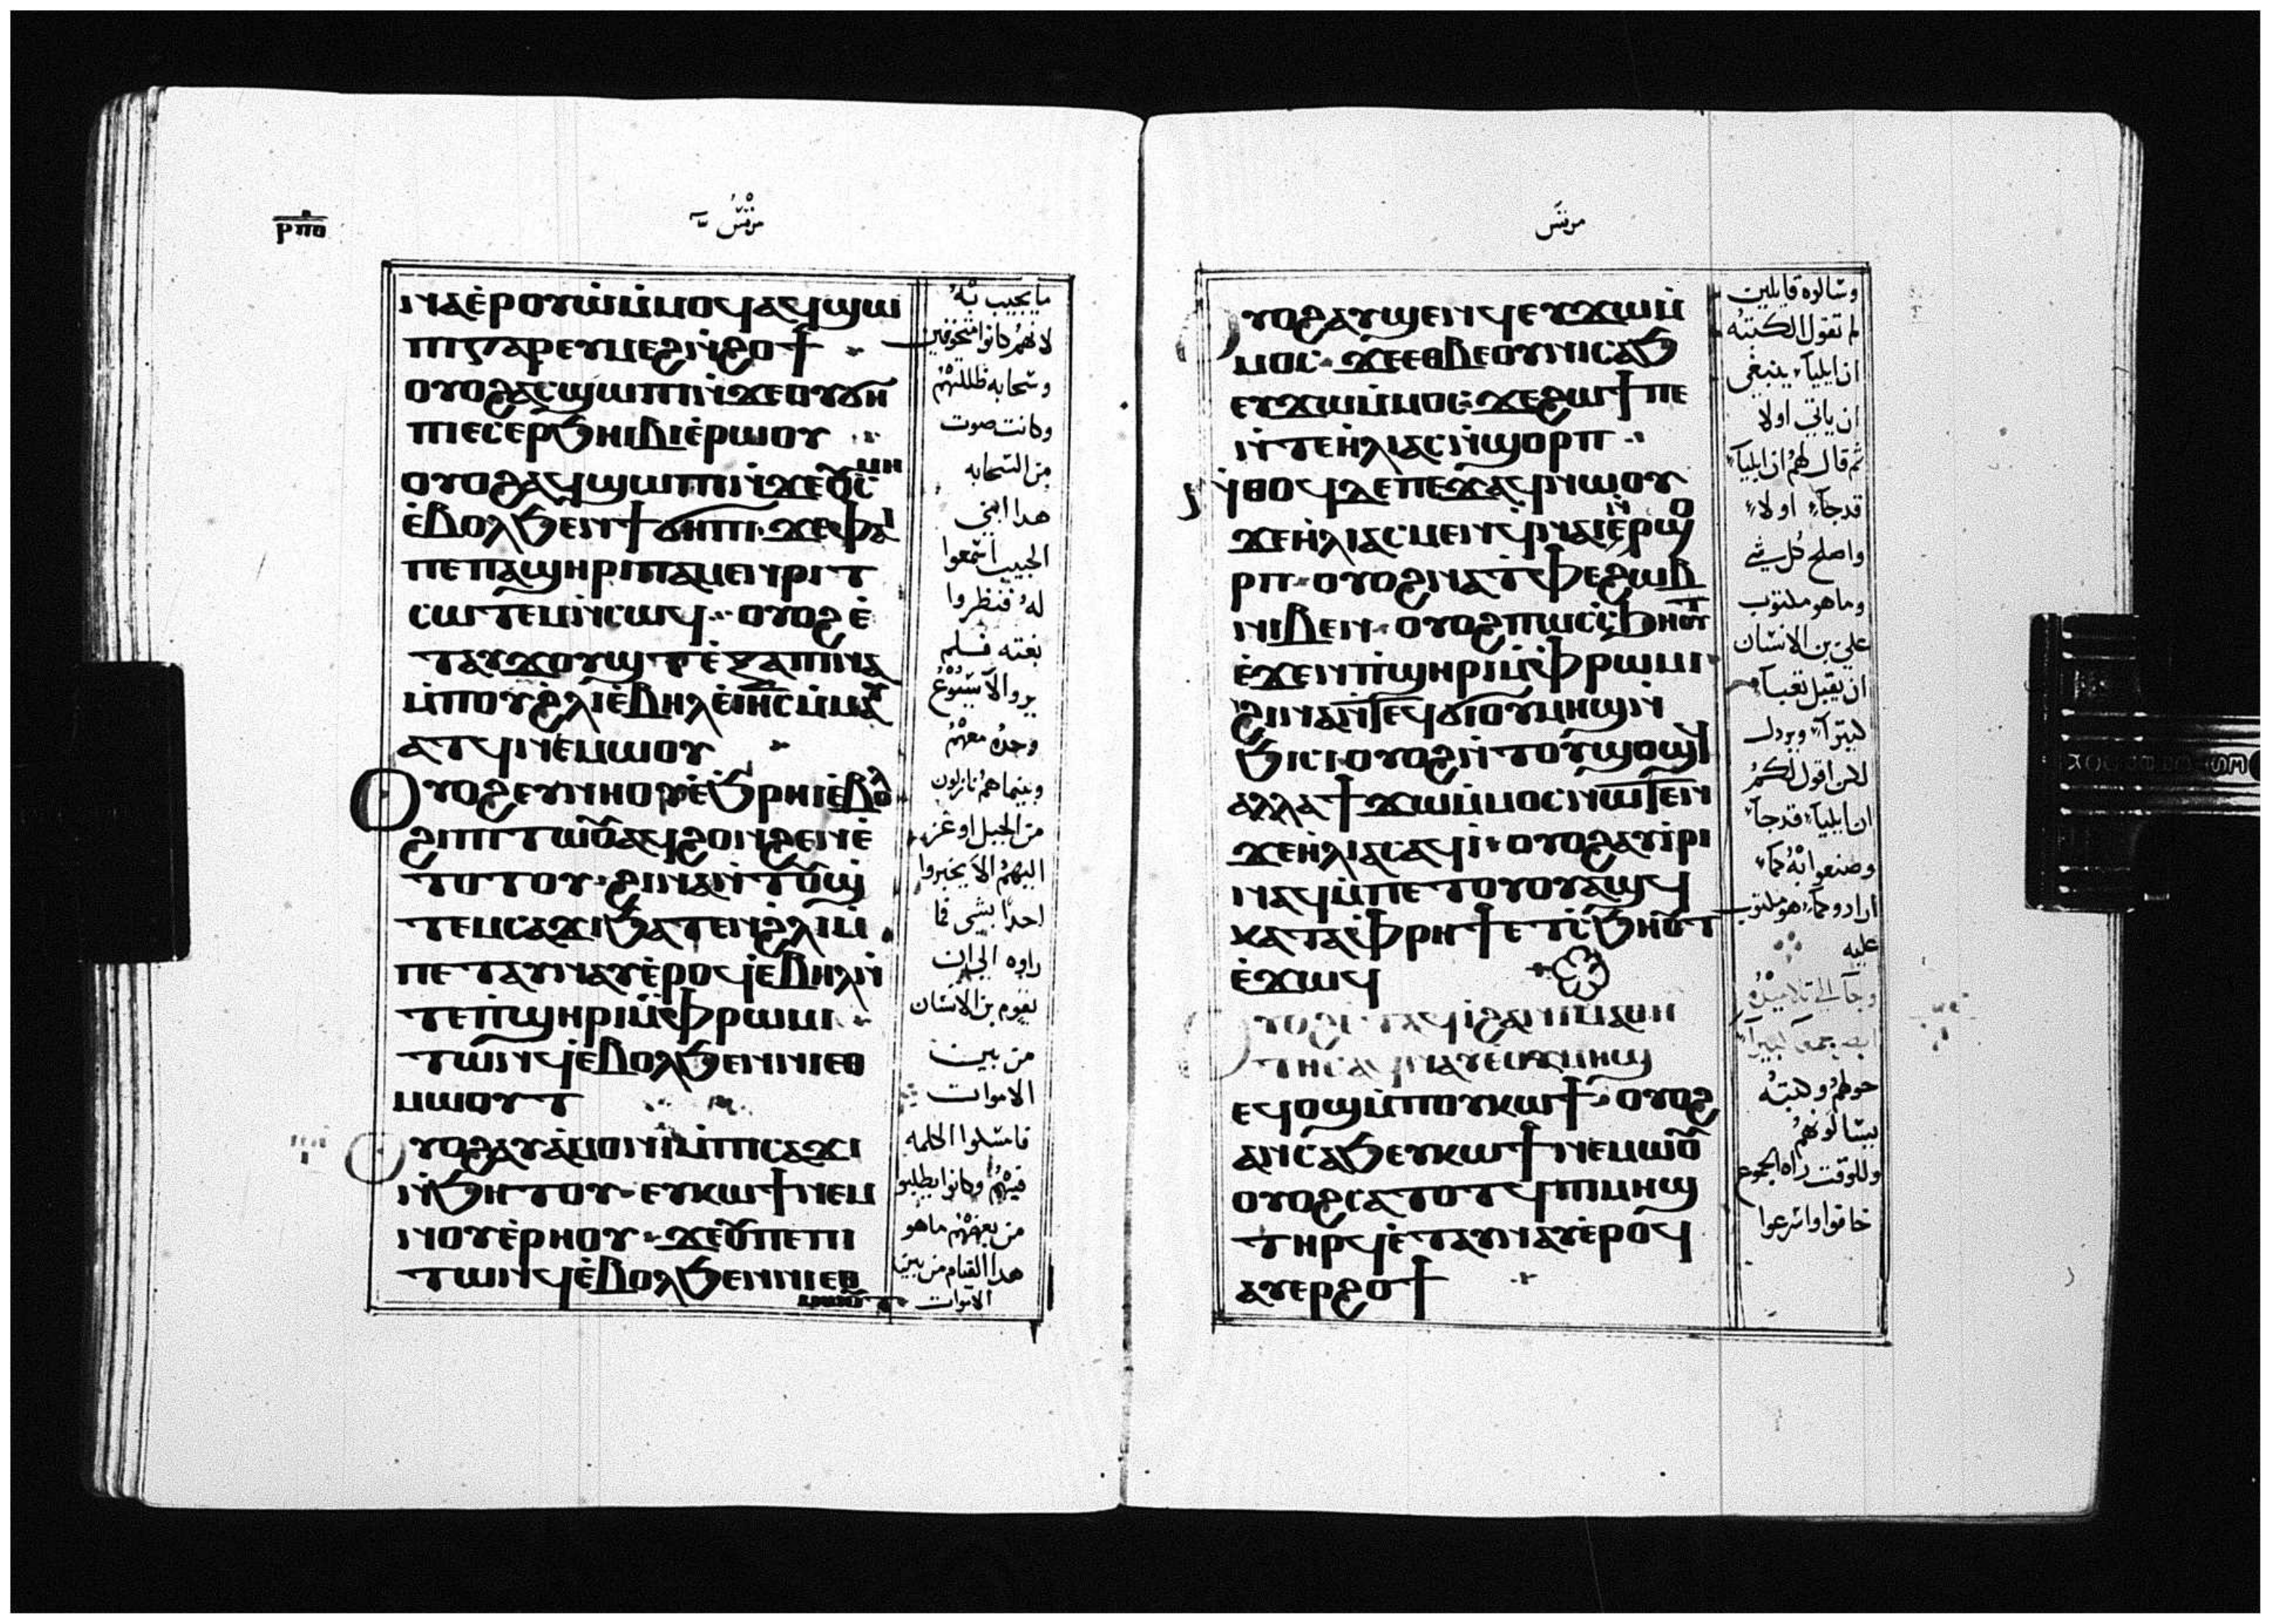 ⲣⲡⲑ
مرقس
ⲛⲁⲉ̇ⲣⲟⲩⲱ̇ⲙ̇ⲙⲟϥⲁϥϣⲱ
ⲡⲓⲅⲁⲣⲉⲩⲙⲉϩⲛ̇ϩⲟϯ
ⲟⲩⲟϩⲁⲥϣⲱⲡⲓⲛ̇ϫⲉⲟⲩϭⲏ
ⲡⲓⲉⲥⲉⲣϧⲏⲓⲃⲓⲉ̇ⲣⲱⲟⲩ
ⲟⲩⲟϩⲁϥϣⲱⲡⲓⲛ̇ϫⲉⲟⲩⲥⲙⲏ
ⲉ̇ⲃⲟⲗϧⲉⲛϯϭⲏⲡⲓ·ϫⲉⲫⲁⲓ
ⲡⲉⲡⲁϣⲏⲣⲓⲡⲁⲙⲉⲛⲣⲓⲧ
ⲥⲱⲧⲉⲙⲛ̇ⲥⲱϥ·ⲟⲩⲟϩⲉ̇
ⲧⲁⲩϫⲟⲩϣⲧⲉ̇ⲝⲁⲡⲓⲛⲁ
ⲙ̇ⲡⲟⲩϩⲗⲓⲉ̇ⲃⲏⲗⲉ̇ⲓⲏⲥⲙ̇ⲙⲁⲩ
ⲁⲧϥⲛⲉⲙⲱⲟⲩ
ⲟⲩⲟϩⲉⲩⲛⲏⲟⲩⲉ̇ϧⲣⲏⲓⲉ̇ⲃⲟⲗ
ϩⲓⲡⲓⲧⲱⲟⲩⲁϥϩⲟⲛϩⲉⲛⲉ̇
ⲧⲟⲧⲟⲩ·ϩⲓⲛⲁⲛ̇ⲧⲟⲩϣ
ⲧⲉⲙⲥⲁϫⲓϧⲁⲧⲉⲛϩⲗⲓⲙ̇
ⲡⲉⲧⲁⲩⲛⲁⲩⲉ̇ⲣⲟϥⲉ̇ⲃⲏⲗⲛ̇
ⲧⲉⲡ̇ϣⲏⲣⲓⲙ̇ⲫⲣⲱⲙⲓ
ⲧⲱⲛϥⲉ̇ⲃⲟⲗϧⲉⲛⲛⲓⲉⲑ
ⲙⲱⲟⲩⲧ
ⲟⲩⲟϩⲁⲩⲁ̇ⲙⲟⲛⲓⲙ̇ⲡⲓⲥⲁϫⲓ
ⲛ̇ϧⲏⲧⲟⲩ·ⲉⲩⲕⲱϯⲛⲉⲙ
ⲛⲟⲩⲉ̇ⲣⲏⲟⲩ·ϫⲉⲟⲩⲡⲉⲡⲓ
ⲧⲱⲛϥⲉ̇ⲃⲟⲗϧⲉⲛⲛⲓⲉⲑ
ⲙⲱⲟⲩⲧ
ما يجيب به
لانهم كانوا متخوفين
وسحابه ظللتهم
وكانت صوت
من السحابه
هدا ابني
الحبيب اسمعوا
له فنظروا
بغته فلم
يروا الا يسوع
وحده معهم
وبينما هم نازلون
من الجبل اوعز
اليهم الا يخبروا
احدا بشي مما
راوه الي ان
يقوم بن الانسان
من بين
الاموات
فامسكوا الكلمه
فيهم وكانوا يطلبوا
من بعضهم ما هو
هدا القيام من بين
الاموات
مرقس
ⲟⲩⲟϩⲁⲩϣⲉⲛϥⲉⲩϫⲱⲙ̇
ⲙⲟⲥ·ϫⲉⲉⲑⲃⲉⲟⲩⲛⲓⲥⲁϧ
ⲉⲩϫⲱⲙ̇ⲙⲟⲥ·ϫⲉϩⲱϯⲡⲉ
ⲛ̇ⲧⲉⲏ̇ⲗⲓⲁⲥⲓ̇ⲛ̇ϣⲟⲣⲡ
ⲛ̇ⲑⲟϥⲇⲉⲡⲉϫⲁϥⲛⲱⲟⲩ
ϫⲉⲏ̇ⲗⲓⲁⲥⲙⲉⲛϥⲛⲁⲓ̇ⲛ̇ϣⲟ
ⲣⲡ·ⲟⲩⲟϩⲛⲁⲧⲫⲉϩⲱⲃ
ⲛⲓⲃⲉⲛ·ⲟⲩⲟϩⲡⲱⲥⲥ̇ϧⲏⲟⲩⲧ
ⲉ̇ϫⲉⲛⲡ̇ϣⲏⲣⲓⲙ̇ⲫⲣⲱⲙⲓ
ϩⲓⲛⲁⲛ̇ⲧⲉϥϭⲓⲟⲩⲙⲏϣⲛ̇
ϧⲓⲥⲓ·ⲟⲩⲟϩⲛ̇ⲧⲟⲩϣⲟϣϥ
ⲁⲗⲗⲁϯϫⲱⲙ̇ⲙⲟⲥⲛⲱⲧⲉⲛ
ϫⲉⲏ̇ⲗⲓⲁⲥⲁϥⲓ̇·ⲟⲩⲟϩⲁⲩⲓ̇ⲣⲓ
ⲛⲁϥⲙ̇ⲡⲉⲧⲟⲩⲟⲩⲁϣϥ
ⲕⲁⲧⲁⲫⲣⲏϯⲉⲧⲥ̇ϧⲏⲟⲩⲧ
ⲉ̇ϫⲱϥ
ⲟⲩⲟϩⲉⲧⲁϥⲓ̇ϩⲁⲛⲓⲙⲁⲑⲏ
ⲧⲏⲥⲁϥⲛⲁⲩⲉ̇ⲟⲩⲙⲏϣ
ⲉϥⲟϣⲙ̇ⲡⲟⲩⲕⲱϯ·ⲟⲩⲟϩ
ⲁⲛⲥⲁϧⲉⲩⲕⲱϯⲛⲉⲙⲱⲟⲩ
ⲟⲩⲟϩⲥⲁⲧⲟⲧϥⲡⲓⲙⲏϣ
ⲧⲏⲣϥⲉ̇ⲧⲁⲩⲛⲁⲩⲉ̇ⲣⲟϥ
ⲁⲩⲉⲣϩⲟϯ
وسالوه قايلين
لم تقول الكتبه
ان ايليا ينبغي
ان ياتي اولا
ثم قال لهم ان ايليا
قد جآء اولا
واصلح كل شي
وما هو مكتوب
علي بن الانسان
ان يقبل تعبا
كثيرا ويردل
لكن اقول لكم
ان ايليا قد جآء
وصنعوا به كما
ارادوا كما هو مكتوب
عليه
وجآ الي تلاميذه
حولهم وكتبه
يسالونهم
وللوقت راه الجموع
خافوا واسرعوا